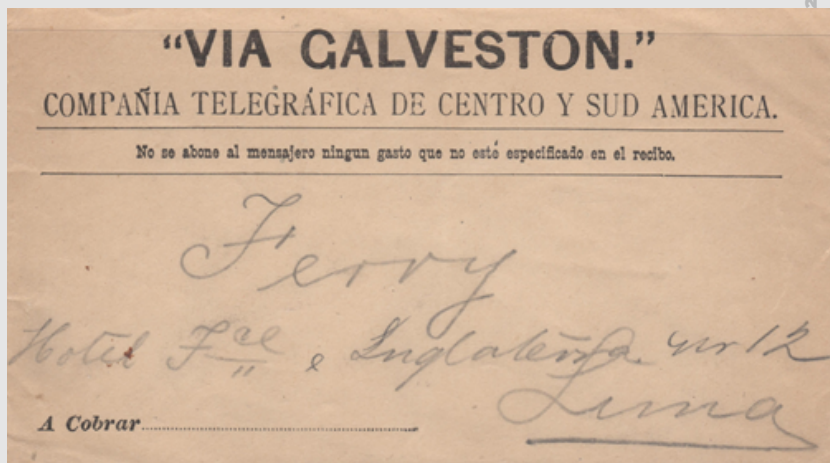 “VIA GALVESTON.”
COMPAÑIA TELEGRÁFICA DE CENTRO Y SUD AMERICA.
No se abone al mensajero ningun gasto que no esté especificado en el recibo.
Ferry
Hotel Fce e Inglaterra nr 12
Lima
A Cobrar